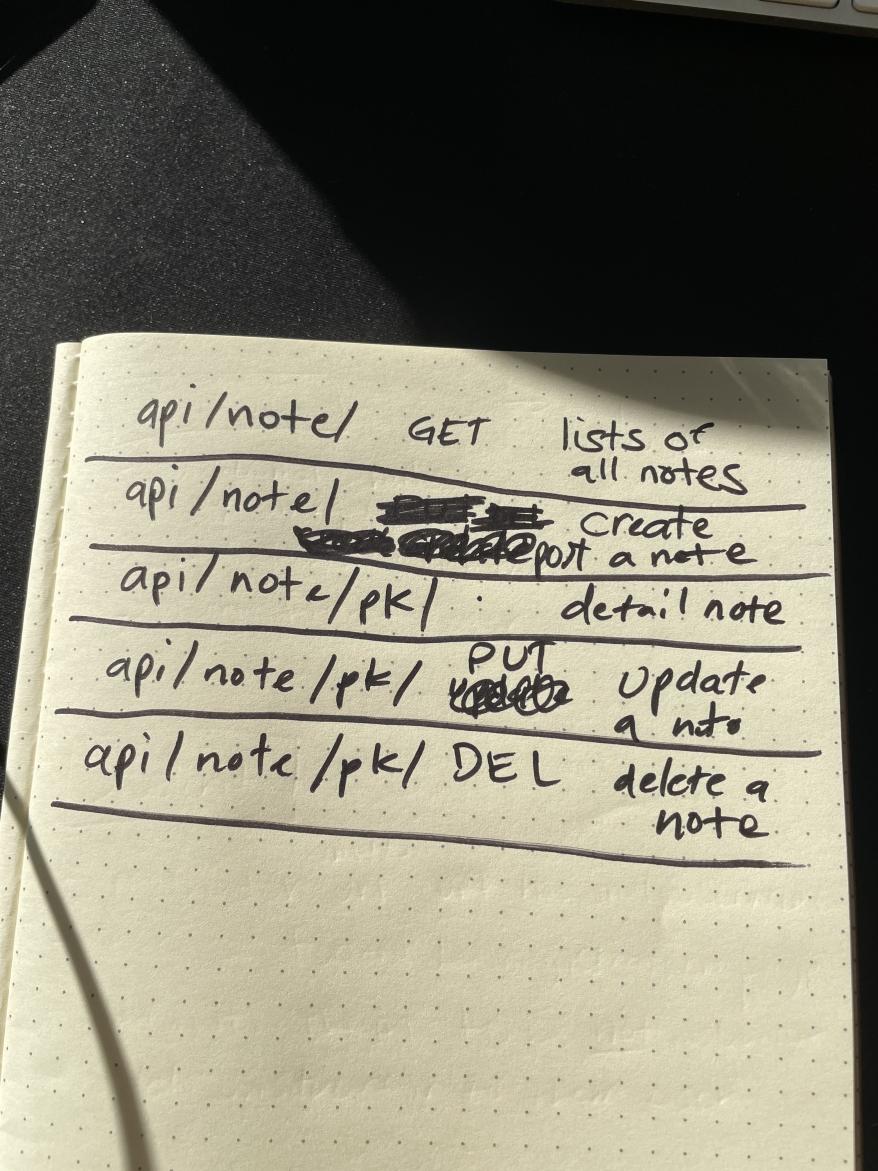 api/note/ GET lists of
all notes
api/note/ create
post a note
api/note/pk/ . detail note
api/note/pk/ PUT update
a note
api/note/pk/ DEL delete a
note